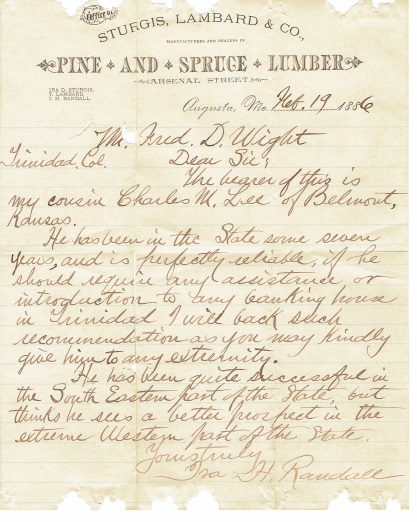 Office of
STURGIS, LAMBARD & CO.,
MANUFACTURERS AND DEALERS IN
PINE AND SPRUCE LUMBER
ARSENAL STREET.
IRA D. STURGIS.
T. LAMBARD.
I. H. RANDALL
Augusta, Me. Feb. 19 1886
Mr. Fred. D. Wight
Trinidad. Col. Dear Sir;
The bearer of this is
my cousin Charles M. Lee of Belmont,
Kansas.
He has been in the State some seven
years, and is perfectly reliable, if he
should require any assistance or
introduction to any banking house
in Trinidad I will back such
recommendation as you may kindly
give him to any extremity.
He has been quite successful in
the South Eastern part of the State, but
thinks he sees a better prospect in the
extreme Western part of the State.
Yours truly
Ira H. Randall